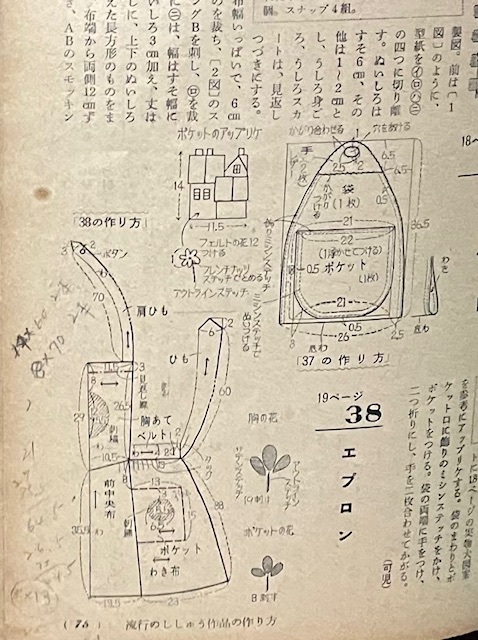 個。スナップ4組。
製図。前は〔1
図〕のように、
型紙を㋑㋺㋩㊁
の四つに切り離
す。ぬいしろは
すそ6cm、その
他は1〜2cmと
し、うしろ身ご
ろ、うしろスカ
ートは、見返し
つづきにする。
布幅いっぱいで、6cm
を裁ち、〔2図〕のス
ングBを刺し、㋺を裁
に㊁は、幅はすそ幅に
いしろ3cm加え、丈は
しに、上下のぬいしろ
えた長方形のものをま
布端から両側12cmず
き、ABのスモッキン
ポケットのアップリケ
14
11.5
フェルトの花12
つける
フレンチナッツ
ステッチでとめる
アウトラインステッチ
かがり合わせる
穴をあける
手
(2枚)
2.5
2
6.5
袋
(1枚)
かがり
つける
0.5
21
36.5
飾りミシンステッチ
22
(1浮かせてつける)
ポケット
(1枚)
0.5
ミシンステッチで
ぬいつける
21
0.5
26
2.5
わき
底わ
底わ
「37の作り方」
「38の作り方」
ボタン
70
肩ひも
ひも
60
29
26.5
胸あて
ベルト
刺繍
前中央布
36.5
刺繍
13
ポケット
わき布
タック
38
13.5
23
胸の花
サテンステッチ
アウトラインステッチ
ポケットの花
19ページ
38
エプロン
トに18ページの実物大図案
を参考にアップリケする。袋のまわりとポ
ケット口に飾りのミシンステッチをかけ、
ポケットをつける。袋の両端に手をつけ、
二つ折りにし、手を二枚合わせてかがる。
(可児)
18ペ
(75) 流行のししゅう作品の作り方